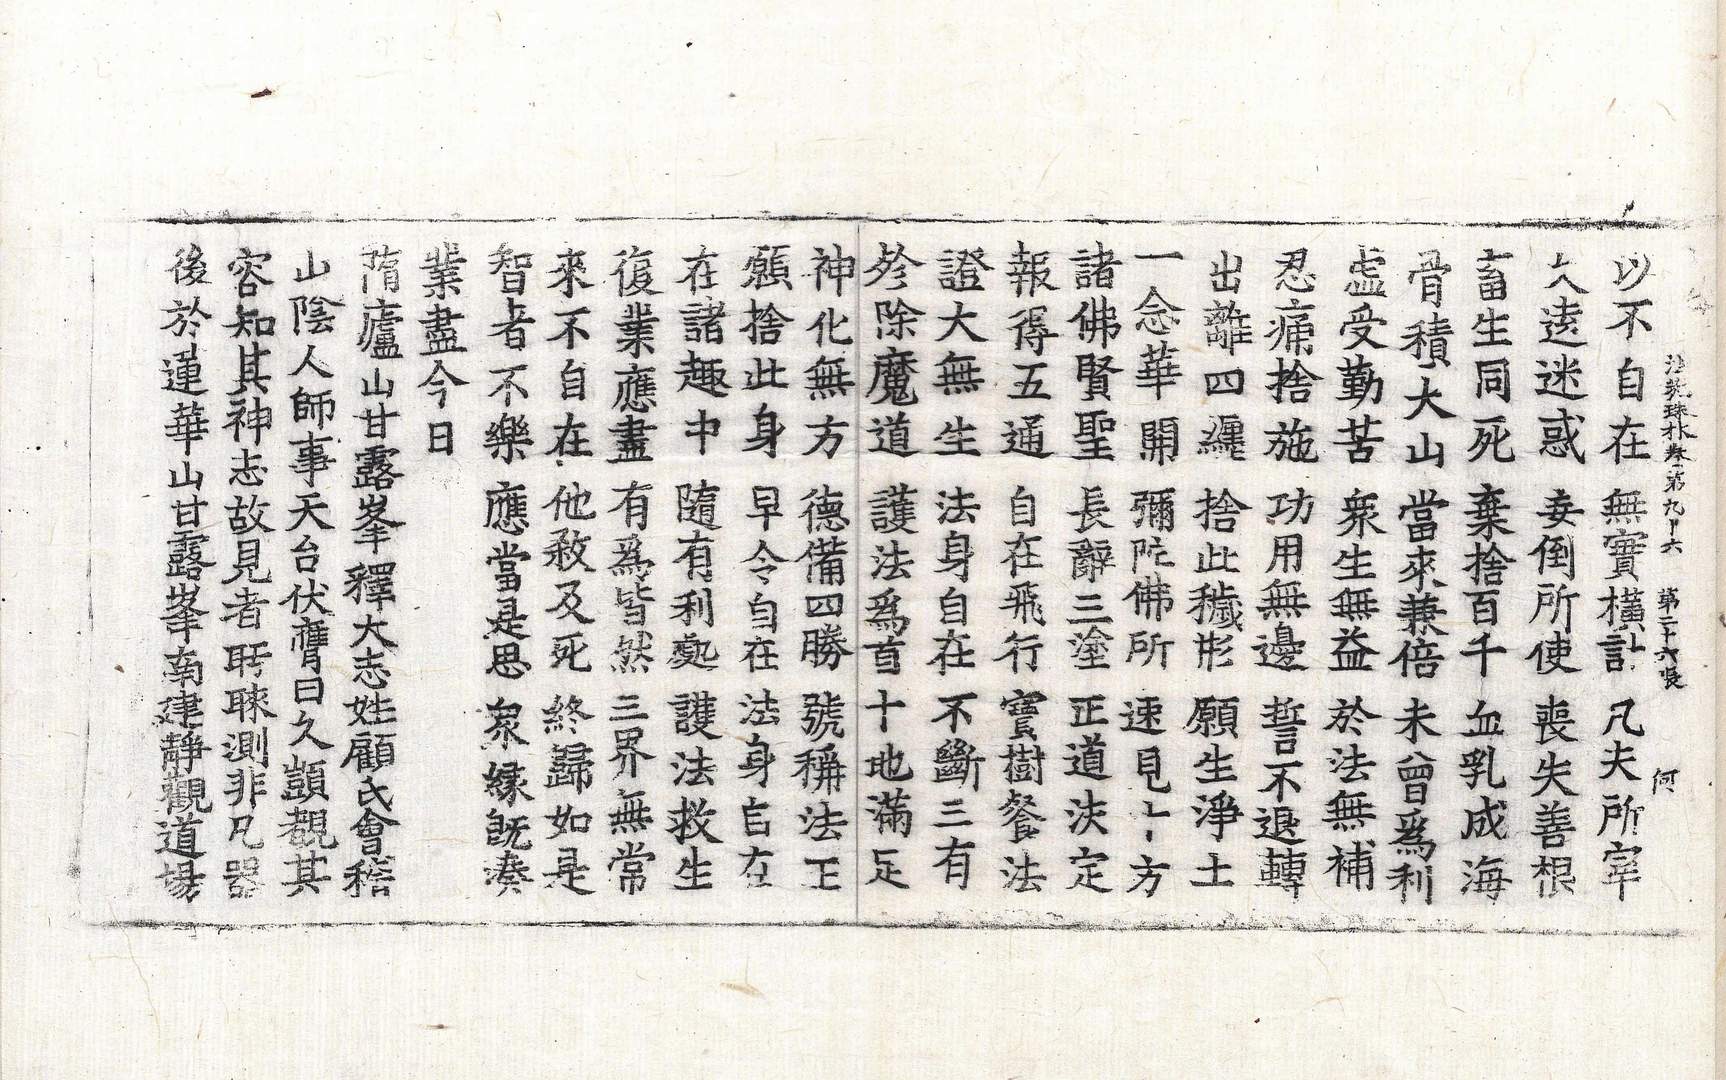 法苑珠林卷第九十六 第二十六張 何
以不自在 無實橫計 凡夫所宰
久遠迷惑 妄倒所使 喪失善根
畜生同死 棄捨百千 血乳成海
骨積大山 當來兼倍 未曾爲利
虛受勤苦 衆生無益 於法無補
忍痛捨施 功用無邊 誓不退轉
出離四纏 捨此穢形 願生淨土
一念華開 彌陀佛所 速見十方
諸佛賢聖 長辭三塗 正道決定
報得五通 自在飛行 寶樹飡法
證大無生 法身自在 不斷三有
殄除魔道 護法爲首 十地滿足
神化無方 德備四勝 號稱法王
願捨此身 早令自在 法身自在
在諸趣中 隨有利處 護法救生
復業應盡 有爲皆然 三界無常
來不自在 他殺及死 終歸如是
智者不樂 應當是思 衆緣旣湊
業盡今日
隋廬山甘露峯釋大志姓顧氏會稽
山陰人師事天台伏膺曰久顗覩其
容知其神志故見者眄睞測非凡器
後於蓮華山甘露峯南建靜觀道場